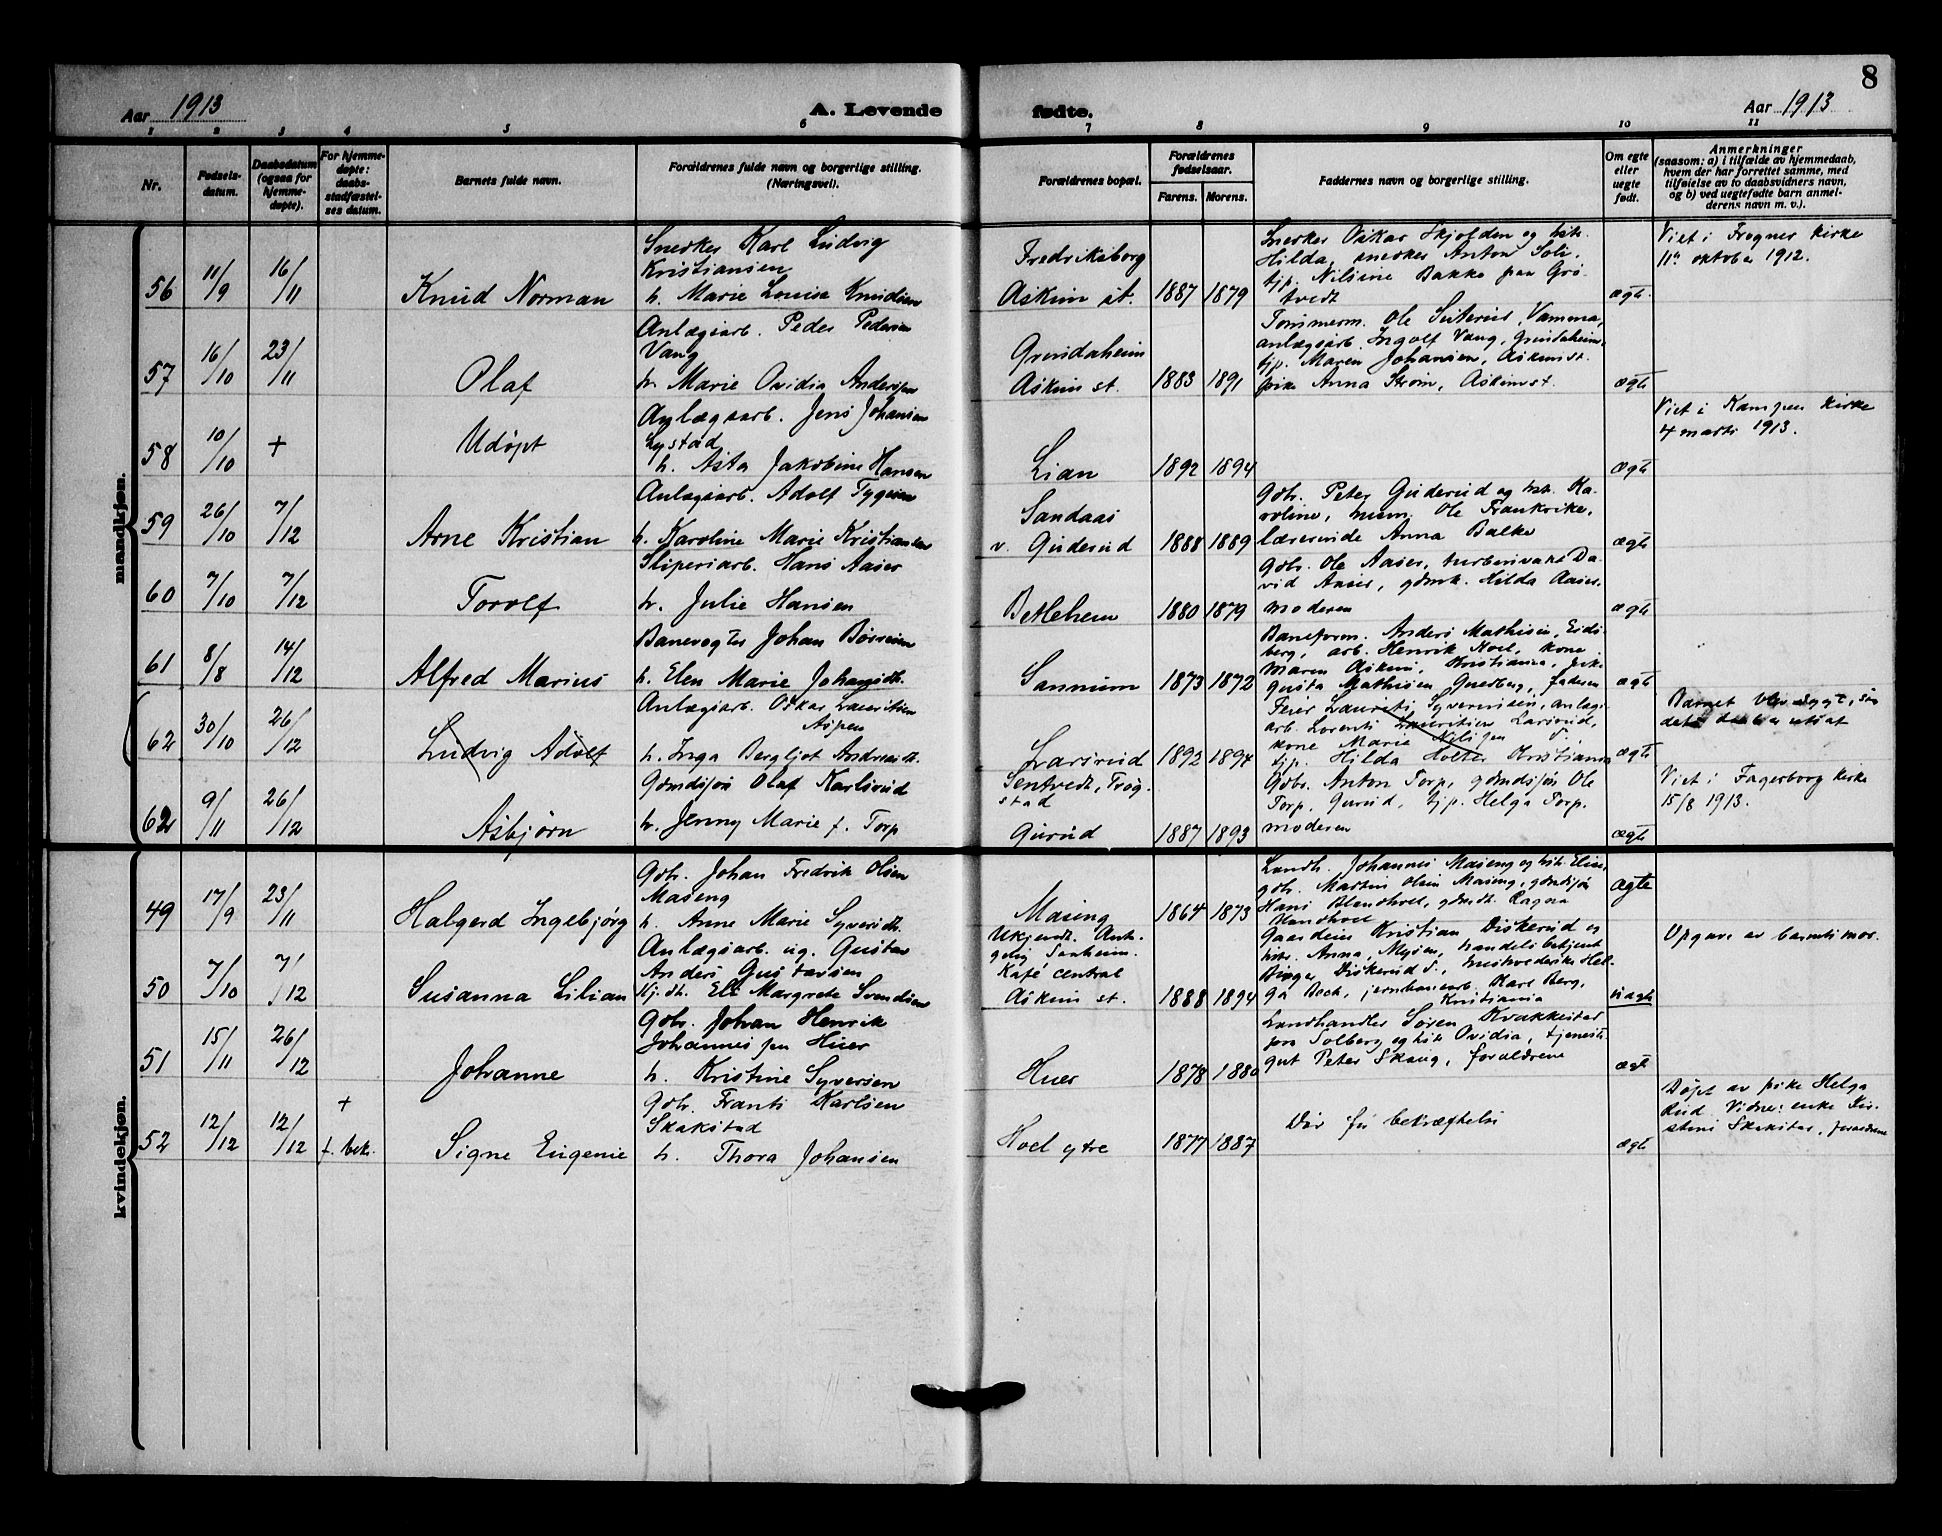 8
Aar 1913
A. Levende
fødte.
Aar 1913
1 2 3 4 5 6 7 8 9 10 11
Nr.
Fødsels-
datum.
Daabsdatum
(ogsaa for
hjemme-
døpte).
For hjemme-
døpte:
daabs-
stadfæstel-
ses datum.
Barnets fulde navn.
Forældrenes fulde navn og borgerlige stilling.
(Næringsvei).
Forældrenes bopæl.
Forældrenes
fødselsaar.
Farens. Morens.
Faddernes navn og borgerlige stilling.
Om egte
eller
uegte
født.
Anmerkninger
(saasom: a) i tilfælde av hjemmedaab,
hvem der har forrettet samme, med
tilføielse av to daabsvidners navn,
og b) ved uegtefødte barn anmel-
derens navn m. v.).
mandkjøn.
56 11/9 16/11 Knud Norman
Snerker Karl Ludvig
Kristiansen
h. Marie Louise Knudsen
Fredriksborg
Askim st. 1887 1879
Snerker Oskar Skjolden og hstr.
Hilda, snerker Anton Soli,
tjp. Nilsine Bakke paa Grø-
tvedt
ægte
Viet i Frogner kirke
11te oktober 1912.
57 16/10 23/11 Olaf
Anlægsarb. Peder Pedersen
Vang
h. Marie Ovidia Andersen
Grindaheim
Askim st. 1883 1891
Tømmerm. Ole Vamma,
anlægsarb. Ingolf Vang, Grindaheim,
tjp. Maren Johansen, Askim st.
pike Anna Strøm, Askim st.
ægte
58 10/10 + Udøpt
Anlægsarb. Jens Johansen
Lystad
h. Asta Jakobine Hansen
Lian 1892 1894
ægte
Viet i Kampen kirke
4 marts 1913.
59 26/10 7/12 Arne Kristian
Anlægsarb. Adolf Tygesen
h. Karoline Marie Kristiansen
Sandaas
v. Guderud 1888 1889
Gbr. Peter Guderud og hstr. Ka-
roline, Ole Frankrike,
lærerinde Anna Balke
ægte
60 7/10 7/12 Torolf
Sliperiarb. Hans Aaser
h. Julie Hansen
Betlehem 1880 1879
Gbr. Ole Aaser, turbinvakt Da-
vid Aaser, gdmk. Hilda Aaser.
moderen
ægte
61 8/8 14/12 Alfred Marius
Banevogter Johan Børresen
h. Elen Marie Johansdt.
Sannum 1873 1872
Baneform. Anders Mathisen, Eids-
berg, arb. Henrik Hoel, kone
Maren Askim, Kristiania,
Mathisen faderen
ægte
62 30/10 26/12 Ludvig Adolf
Anlægsarb. Oskar Lauritsen
Aspen
h. Inga Bergljot Andreasdt.
Larsrud 1892 1894
Syversen, anlægs-
arb. Lorents Lauritsen Larsrud,
kone Marie Nilsen
tjp. Hilda Holter Kristiania
ægte
Barnet blev sygt, saa
daaben utsat
62 9/11 26/12 Asbjørn
Gdmdsjøn Olaf Karlsrud
h. Jenny Marie f. Torp
Sentvedt, Trøg-
stad
Gurud 1887 1893
Gbr. Anton Torp, gdmdsjøn Ole
Torp, Gurud, tjp. Helga Torp,
moderen
ægte
Viet i Fagerborg kirke
15/8 1913.
kvindekjøn.
49 17/9 23/11 Halgerd Ingebjørg
Gbr. Johan Fredrik Olsen
Maseng
h. Anne Marie Syversdt.
Maseng 1864 1873
Landh. Johannes Maseng og hstr. Elise,
gbr. Martin Olsen Maseng, gdmdsjøn
Hans Blandhoel, gdmdt. Ragna
Blandhoel
ægte
50 7/10 7/12 Susanna Lilian
Anlægsarb. ug. Gustav
Anders Gustavsen
Kj.dt. Eli Margrete Svendsen
Ukjendt. Ant-
gelig Sanheim.
Kafé central
Askim st. 1888 1894
Gaardeier Kristian Diskerud og
hstr. Anna, Mysen, handelsbetjent
Birger Diskerud S.,
ga Bech, jernbanearb. Karl Berg,
Kristiania
uægte
Opgave av barnets mor.
51 15/11 26/12 Johanne
Gbr. Johan Henrik
Johannessen Huer
h. Kristine Syversen
Huer 1878 1880
Landhandler Søren Krakkestad
paa Solberg og hstr. Ovidia, tjeneste-
gut Peter Skaug, forældrene
ægte
52 12/12 12/12 + f. bek. Signe Eugenie
Gbr. Frants Karlsen
Skakstad
h. Thora Johansen
Hoel ytre 1877 1887
Død før bekræftelse
ægte
Døpt av pike Helga
Rud. Vidner: enke Kir-
stine Skakstad, forældrene